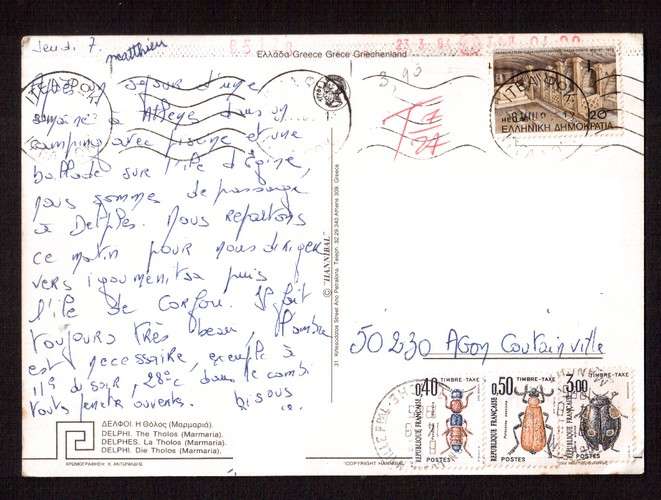 Jeudi 7.
matthieu
Ελλάδα Greece Grèce Griechenland
Après un séjour d'une
semaine à Athènes dans un
camping avec piscine et une
ballade sur l'île d'Égine
nous sommes de passage
à Delphes. Nous repartons
ce matin pour nous diriger
vers igoumenitsa puis
l'île de Corfou. Il fait
toujours très beau, l'ombre
est nécessaire, exemple à
11h du soir, 28°c dans le combi
touts fenêtre ouverts. Bisous
ΔΕΛΦΟΙ. Η Θόλος (Μαρμαριά).
DELPHI. The Tholos (Marmaria).
DELPHES. La Tholos (Marmaria).
DELPHI. Die Tholos (Marmaria).
ΧΡΩΜΟΓΡΑΦΗΣΗ Χ. ΑΝΤΩΝΙΑΔΗΣ
© "HANNIBAL"
COPYRIGHT HANNIBAL
3,90
T
20
ΕΛΛΗΝΙΚΗ ΔΗΜΟΚΡΑΤΙΑ
50230 AGON Coutainville
0,40 TIMBRE-TAXE
RÉPUBLIQUE FRANÇAISE
POSTES
0,50 TIMBRE-TAXE
RÉPUBLIQUE FRANÇAISE
POSTES
3,00 TIMBRE-TAXE
RÉPUBLIQUE FRANÇAISE
POSTES